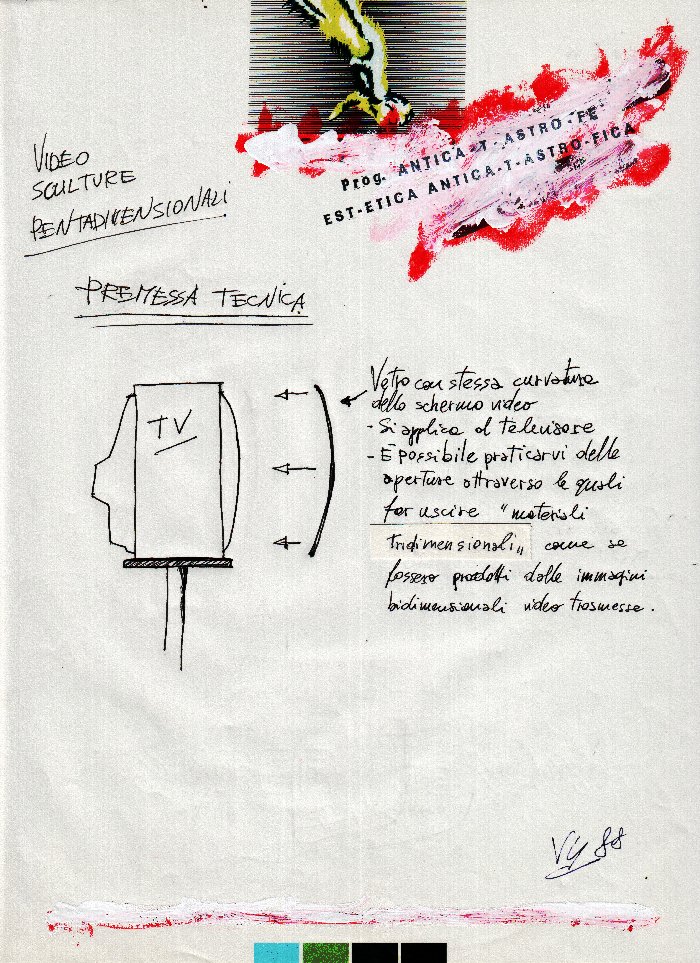 Prog. ANTICA-T-ASTRO-FE
EST-ETICA ANTICA-T-ASTRO-FICA
VIDEO
SCULTURE
PENTADIMENSIONALI
PREMESSA TECNICA
TV
Vetro con stessa curvatura
dello schermo video
- Si applica al televisore
- È possibile praticarvi delle
aperture attraverso le quali
far uscire "materiali
tridimensionali" come se
fossero prodotti dalle immagini
bidimensionali video trasmesse.
VY 88